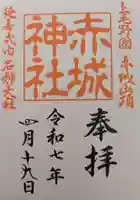 上毛野國 赤城山頂
奉拝
赤城神社
令和七年
四月十九日
延喜式内 名神大社